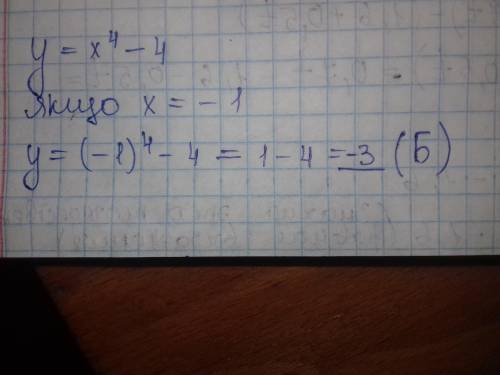 y = x⁴ - 4
Якщо x = - 1
y = (-1)⁴ - 4 = 1 - 4 = -3 (Б)